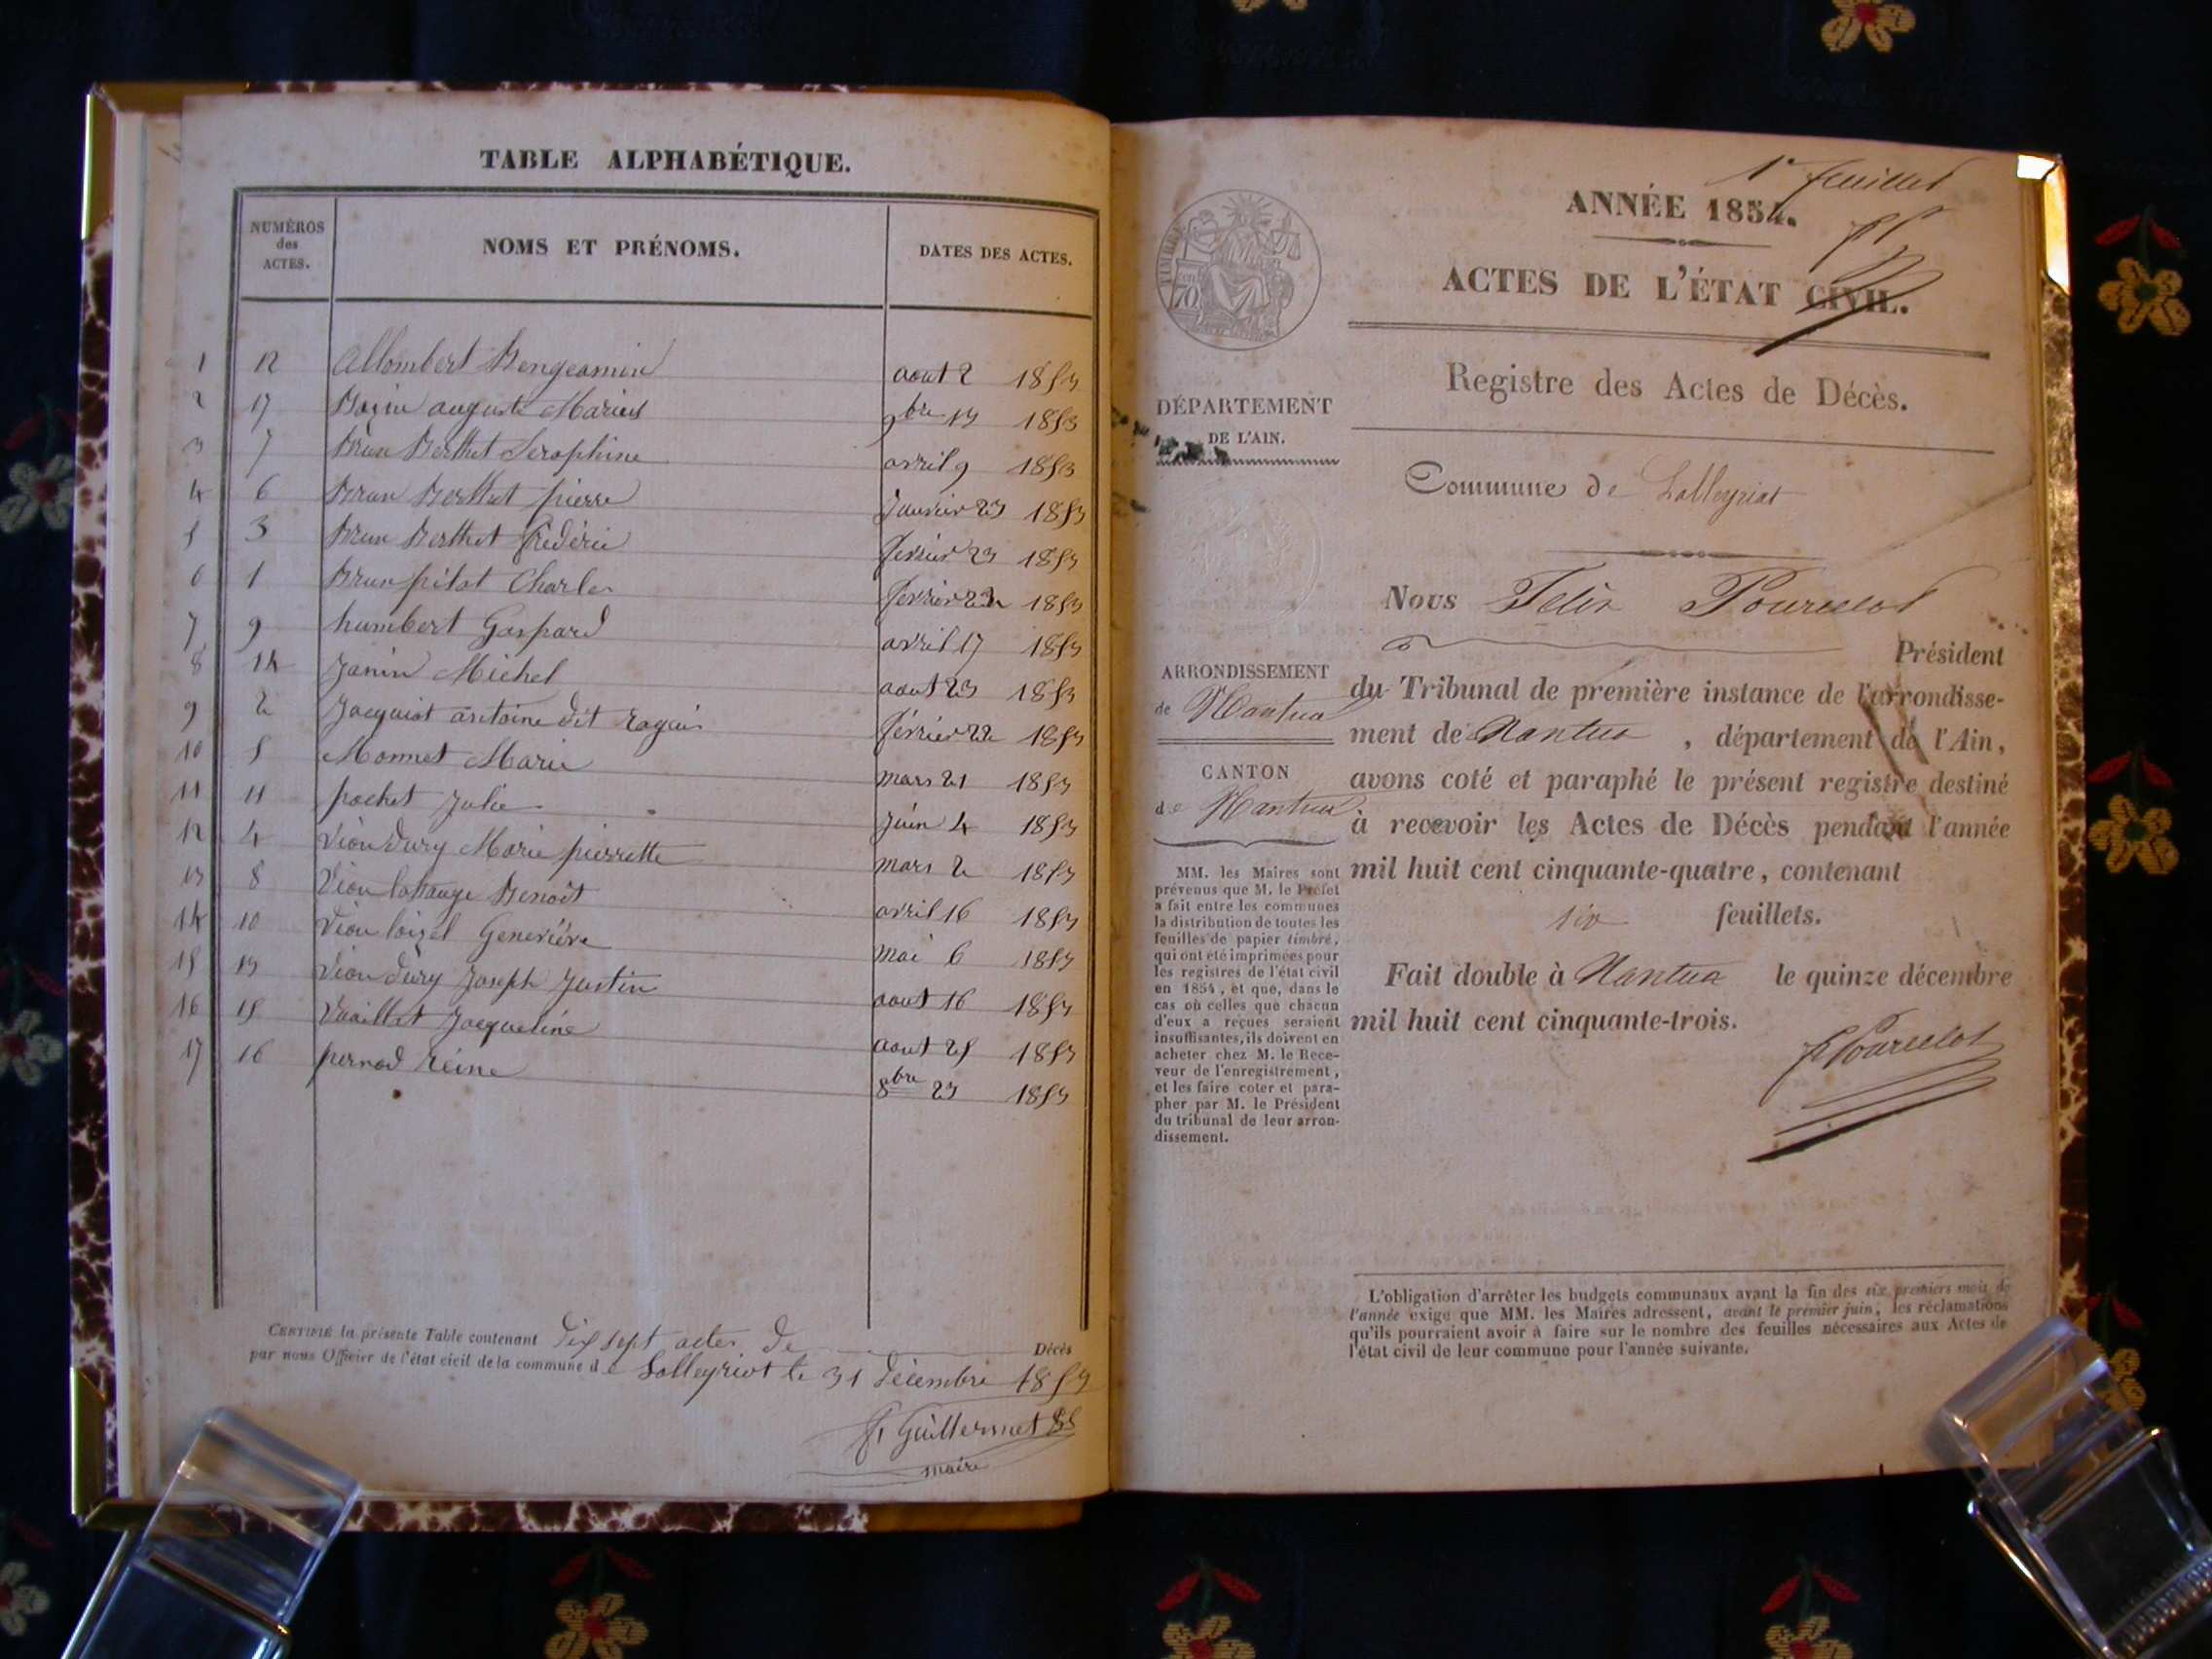 TABLE ALPHABÉTIQUE.
NUMÉROS
des
ACTES.
NOMS ET PRÉNOMS.
DATES DES ACTES.
1 12 Allombert Bengeamin aout 2 1853
2 17 auguste Marius 9bre 13 1853
3 7 Brun Berthet Seraphine avril 9 1853
4 6 Brun Berthet pierre Janvier 23 1853
5 3 Brun Berthet frederic fevrier 23 1853
6 1 Brun pilat Charles fevrier 1853
7 9 humbert Gaspard avril 17 1853
8 14 Janin Michel aout 23 1853
9 2 Jacquiot antoine dit février 22 1853
10 5 Monnet Marie mars 21 1853
11 11 pochet Julie Juin 4 1853
12 4 Vion dury Marie pierrette mars 2 1853
13 8 Vion Benoit avril 16 1853
14 10 Vion loizel Genevieve mai 6 1853
15 13 Vion dury Joseph Justin aout 16 1853
16 15 Vuaillat Jacqueline aout 25 1853
17 16 pernod Reine 8bre 23 1853
CERTIFIÉ la présente Table contenant dix sept actes de Décès
par nous Officier de l'état civil de la commune de Lalleyriat le 31 décembre 1853
Guillermet
maire
1er feuillet
ANNÉE 1854.
ACTES DE L'ÉTAT CIVIL.
Registre des Actes de Décès.
Commune de Lalleyriat
Nous Félix Pourcelot
Président
du Tribunal de première instance de l'arrondisse-
ment de Nantua , département de l'Ain,
avons coté et paraphé le présent registre destiné
à recevoir les Actes de Décès pendant l'année
mil huit cent cinquante-quatre, contenant
six feuillets.
Fait double à Nantua le quinze décembre
mil huit cent cinquante-trois.
F Pourcelot
TIMBRE
70
DÉPARTEMENT
DE L'AIN.
ARRONDISSEMENT
de Nantua
CANTON
de Nantua
MM. les Maires sont
prévenus que M. le Préfet
a fait entre les communes
la distribution de toutes les
feuilles de papier timbré,
qui ont été imprimées pour
les registres de l'état civil
en 1854, et que, dans le
cas où celles que chacun
d'eux a reçues seraient
insuffisantes, ils doivent en
acheter chez M. le Rece-
veur de l'enregistrement,
et les faire coter et para-
pher par M. le Président
du tribunal de leur arron-
dissement.
L'obligation d'arrêter les budgets communaux avant la fin des six premiers mois de
l'année exige que MM. les Maires adressent, avant le premier juin, les réclamations
qu'ils pourraient avoir à faire sur le nombre des feuilles nécessaires aux Actes de
l'état civil de leur commune pour l'année suivante.